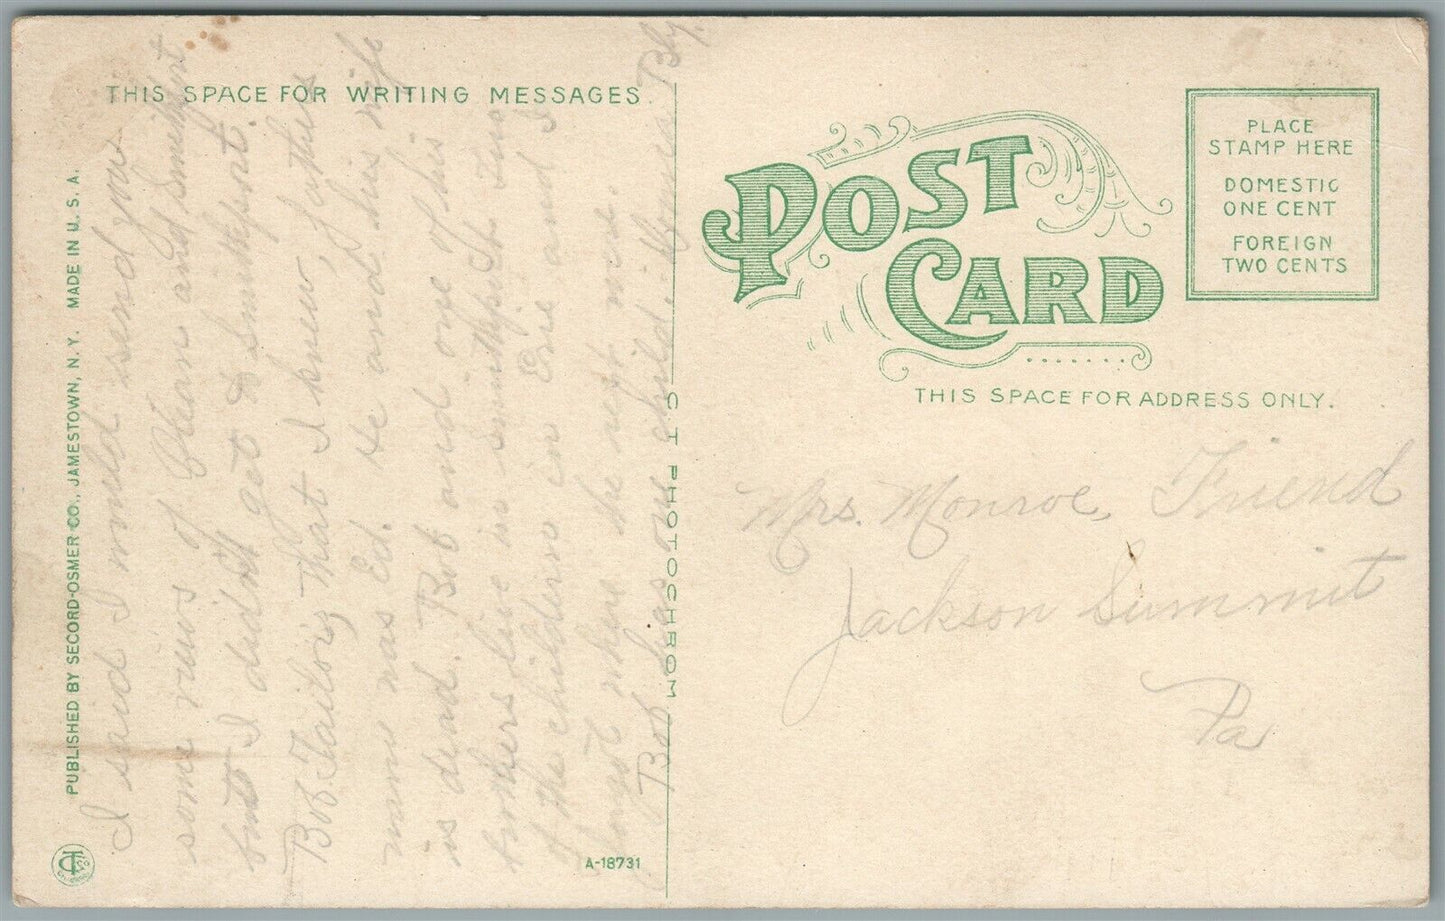 THIS SPACE FOR WRITING MESSAGES.
PUBLISHED BY SECORD-OSMER CO., JAMESTOWN, N. Y. MADE IN U. S. A.
I said I would send you
some views of Olean and Smethport
but I didn't get to Smethport.
Bob that I knew,
name was Ed. He and his wife
is dead. Bob and one of his
brothers live in Smethport. Two
of the children in Erie and I
forgot where the rest were.
Bob has one child.
C T PHOTOCHROM
A-18731
POST CARD
PLACE
STAMP HERE
DOMESTIC
ONE CENT
FOREIGN
TWO CENTS
THIS SPACE FOR ADDRESS ONLY.
Mrs. Monroe Friend
Jackson Summit
Pa